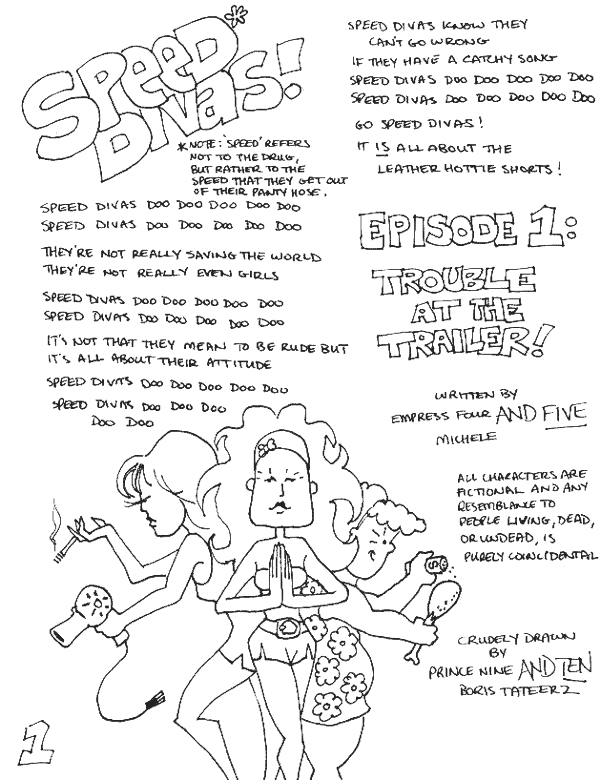 SPEED DIVAS!*
*NOTE: 'SPEED' REFERS
NOT TO THE DRUG,
BUT RATHER TO THE
SPEED THAT THEY GET OUT
OF THEIR PANTY HOSE.
SPEED DIVAS DOO DOO DOO DOO DOO
SPEED DIVAS DOO DOO DOO DOO DOO
THEY'RE NOT REALLY SAVING THE WORLD
THEY'RE NOT REALLY EVEN GIRLS
SPEED DIVAS DOO DOO DOO DOO DOO
SPEED DIVAS DOO DOO DOO DOO DOO
IT'S NOT THAT THEY MEAN TO BE RUDE BUT
IT'S ALL ABOUT THEIR ATTITUDE
SPEED DIVAS DOO DOO DOO DOO DOO
SPEED DIVAS DOO DOO DOO
DOO DOO
SPEED DIVAS KNOW THEY
CAN'T GO WRONG
IF THEY HAVE A CATCHY SONG
SPEED DIVAS DOO DOO DOO DOO DOO
SPEED DIVAS DOO DOO DOO DOO DOO
GO SPEED DIVAS!
IT IS ALL ABOUT THE
LEATHER HOTTIE SHORTS!
EPISODE 1:
TROUBLE
AT THE
TRAILER!
WRITTEN BY
EMPRESS FOUR AND FIVE
MICHELE
ALL CHARACTERS ARE
FICTIONAL AND ANY
RESEMBLANCE TO
PEOPLE LIVING, DEAD,
OR UNDEAD, IS
PURELY COINCIDENTAL
CRUDELY DRAWN
BY
PRINCE NINE AND TEN
BORIS TATEERZ
1